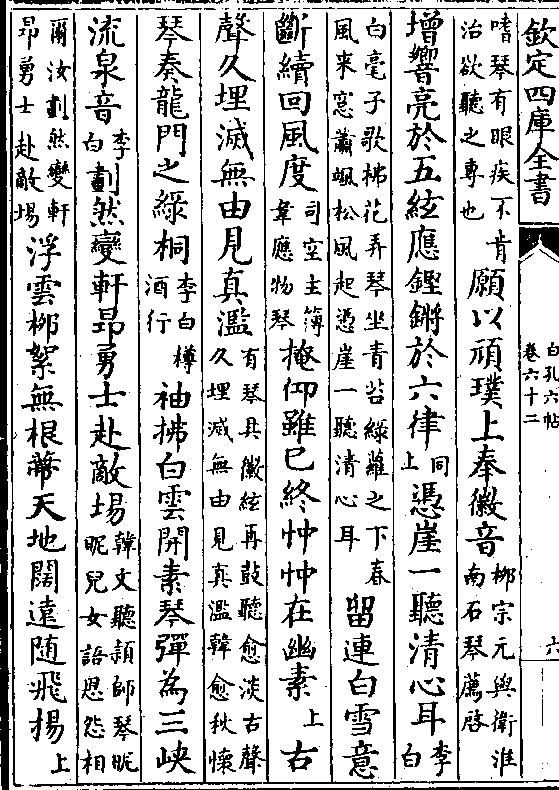 欽定四庫全書
白孔六帖
卷六十二
六
嗜琴有眼疾不肯
治欲聽之專也
願以頑璞上奉徽音
栁宗元與衛淮
南石琴薦啓
增響亮於五絃應鏗鏘於六律
同
上
憑崖一聽清心耳
李
白
白毫子歌拂花弄琴坐青苔綠蘿之下春
風来窓蕭颯松風起憑崖一聽清心耳
留連白雪意
斷續回風度
司空主簿
韋應物琴
掩仰雖已終忡忡在幽素
上
古
聲久埋滅無由見真濫
有琴具徽絃再鼓聽愈淡古聲
久埋滅無由見真濫韓愈秋懷
琴奏龍門之綠桐
李白樽
酒行
袖拂白雲開素琴彈為三峽
流泉音
李
白
劃然變軒昂勇士赴敵場
韓文聽頴師琴昵
昵兒女語恩怨相
爾汝劃然變軒
昂勇士赴敵塲
浮雲栁絮無根蔕天地闊遠随飛揚
上